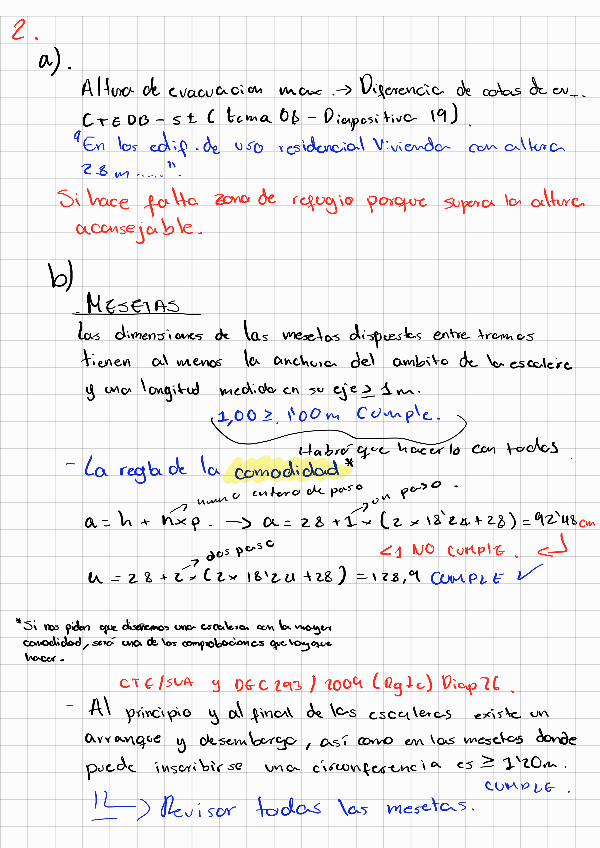 2.
a).
Altura de evacuacion max. → Diferencia de cotas de ev...
CTE DB-SI (tema 06 - Diapositiva 19).
"En los edif. de uso residencial Vivienda con altura
28 m ....."
Si hace falta zona de refugio porque supera la altura
aconsejable.
b)
MESETAS
Las dimensiones de las mesetas dispuestas entre tramos
tienen al menos la anchura del ambito de la escalera
y una longitud medida en su eje ≥ 1m.
1,00 ≥ 1'00m Cumple.
Habrá que hacerlo con todas.
- La regla de la comodidad*
numero entero de paso
un paso.
a = h + n×p. → a = 28 + 1 × (2 × 18'24 + 28) = 92'48 cm
<1 NO CUMPLE.
dos paso
a = 28 + 2 × (2 × 18'24 + 28) = 128,9 CUMPLE ✓
*Si nos piden que diseñemos una escalera con la mayor
comodidad, será una de las comprobaciones que hay que
hacer.
CTE/SUA y DEC 293/2009 (Rgto) Diap 26.
- Al principio y al final de las escaleras existe un
arranque y desembarco, así como en las mesetas donde
puede inscribirse una circonferencia es ≥ 1'20m.
CUMPLE.
Revisar todas las mesetas.